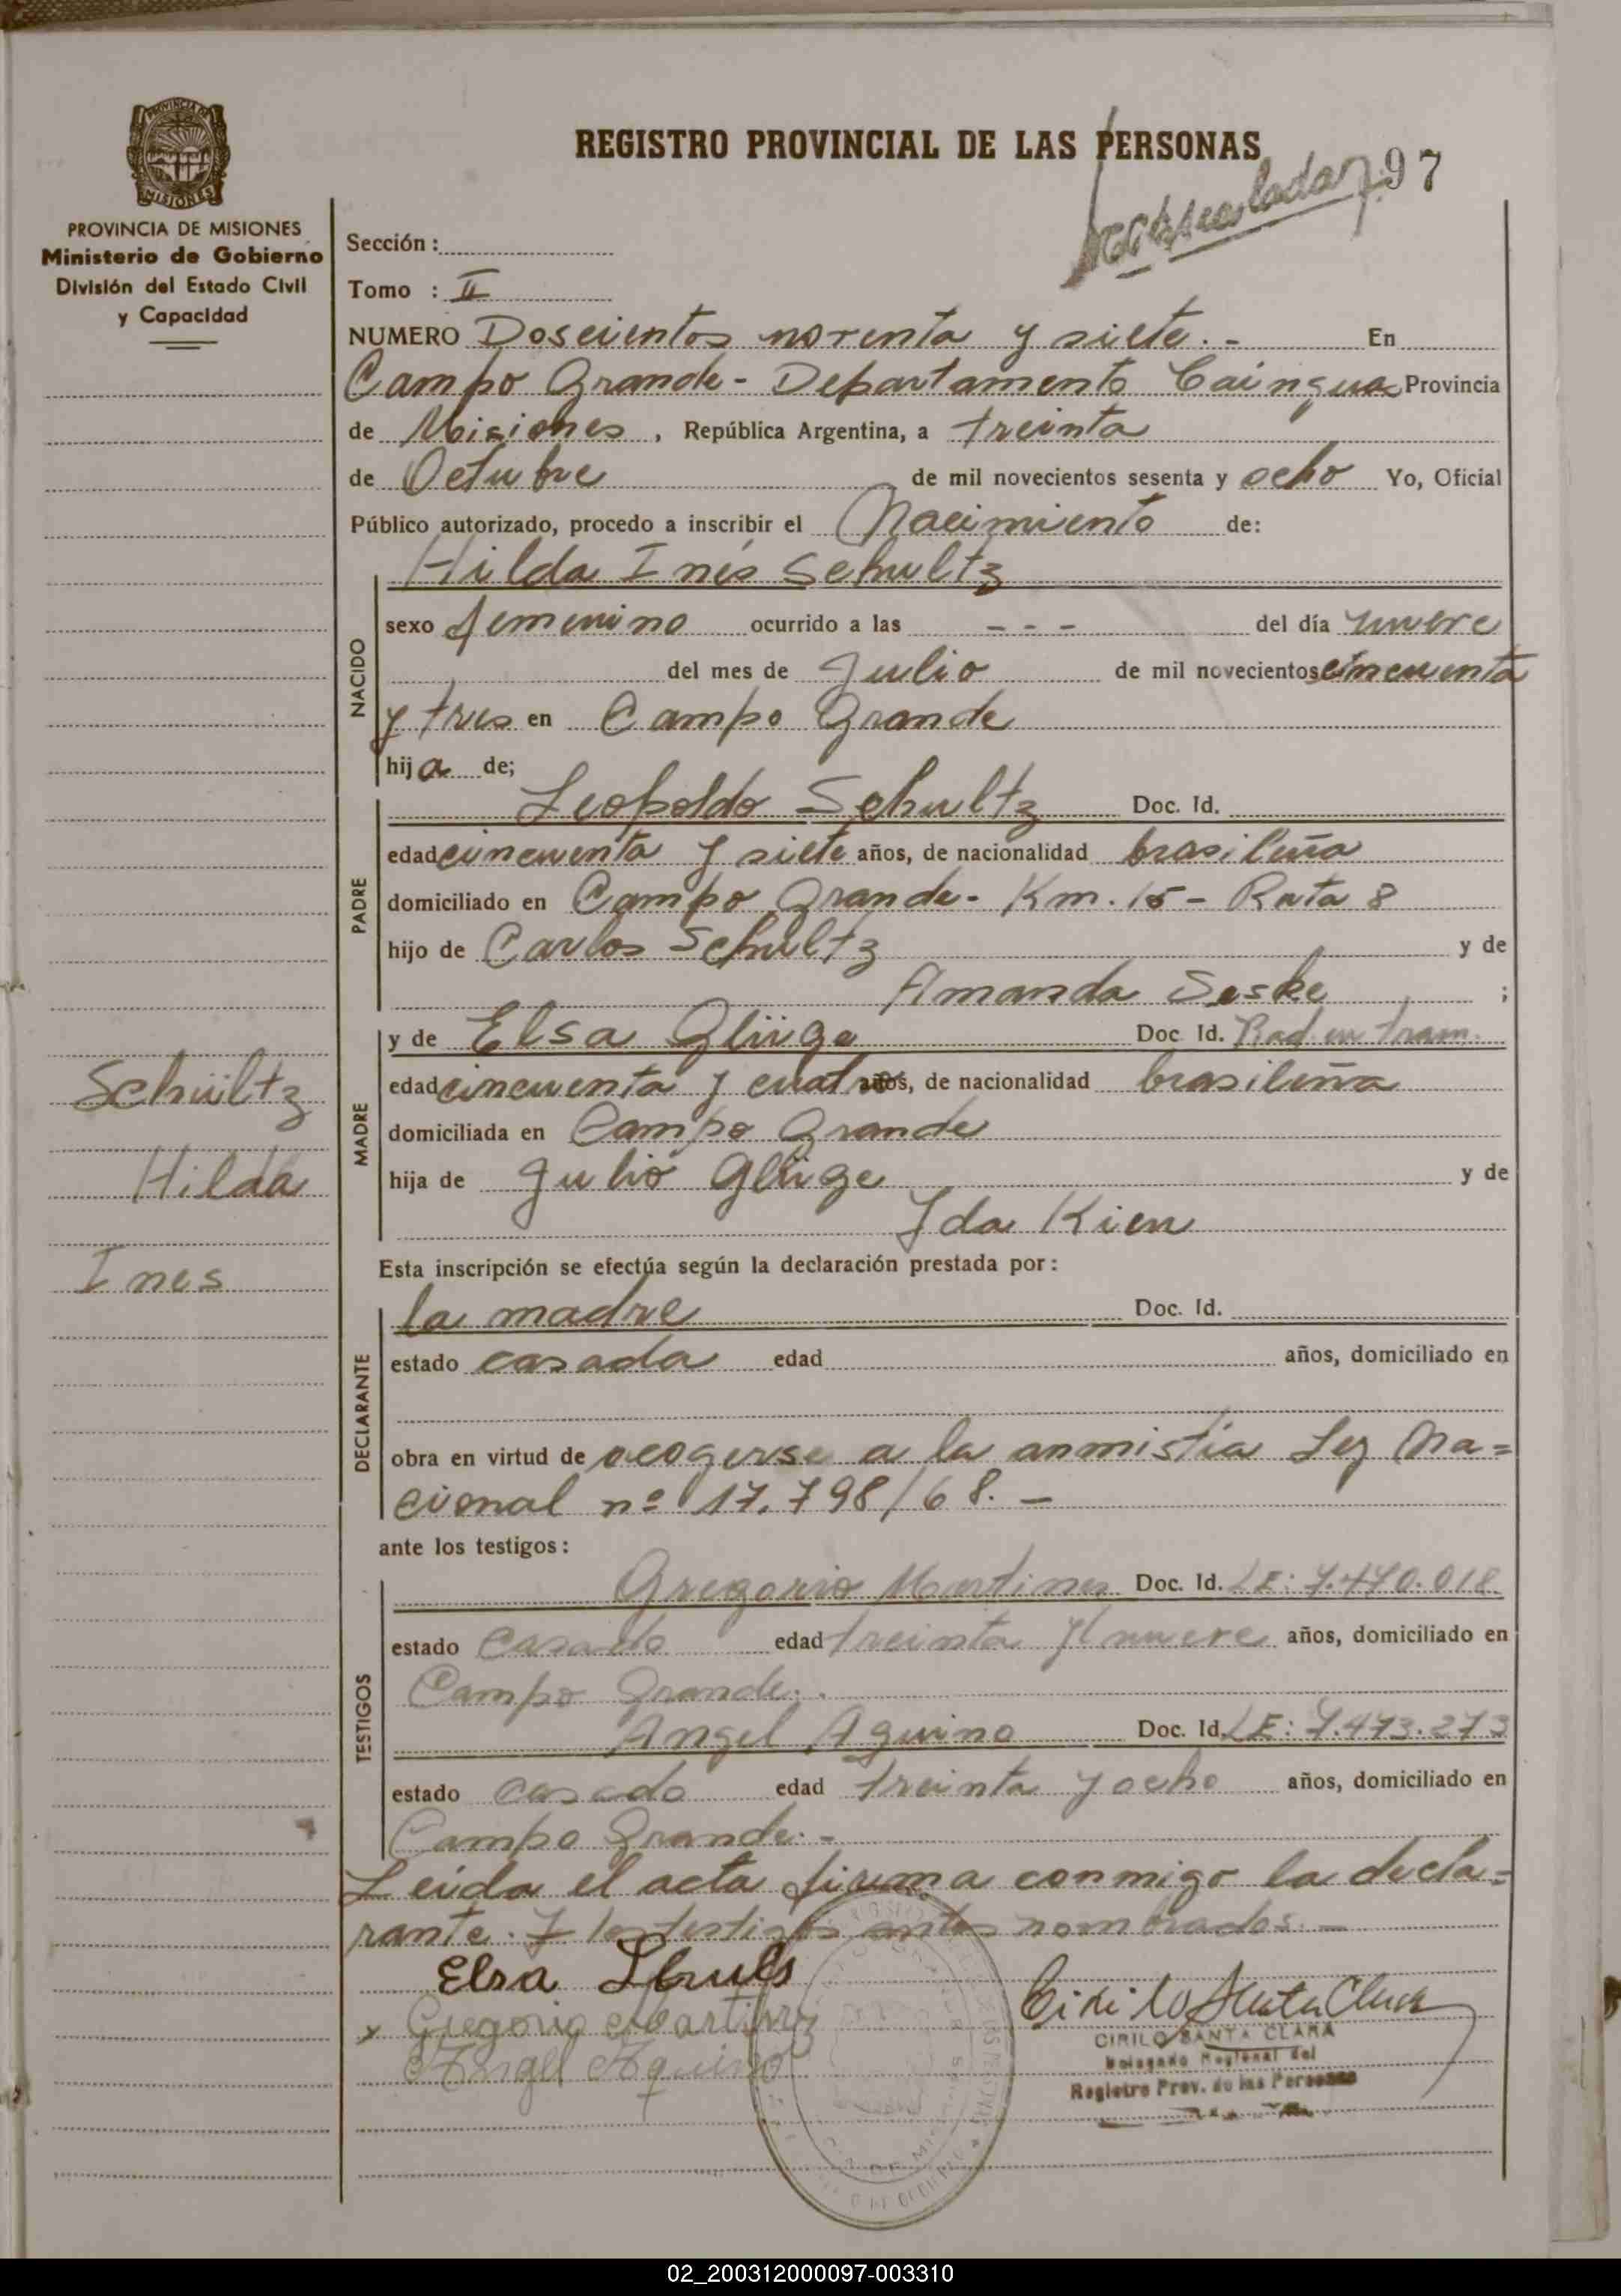 REGISTRO PROVINCIAL DE LAS PERSONAS
97
PROVINCIA DE MISIONES
Ministerio de Gobierno
División del Estado Civil
y Capacidad
Sección :
Tomo : II
NUMERO Doscientos noventa y siete. - En
Campo Grande - Departamento Cainguas Provincia
de Misiones , República Argentina, a treinta
de Octubre de mil novecientos sesenta y ocho Yo, Oficial
Público autorizado, procedo a inscribir el Nacimiento de:
Hilda Inés Schultz
NACIDO
sexo femenino ocurrido a las - - - del día nueve
del mes de Julio de mil novecientos cincuenta
y tres en Campo Grande
hija de;
PADRE
Leopoldo Schultz Doc. Id.
edad cincuenta y siete años, de nacionalidad brasileña
domiciliado en Campo Grande - Km. 15 - Ruta 8
hijo de Carlos Schultz y de
Amanda Seske ;
MADRE
y de Elsa Glüge Doc Id. Rad. en tram.
edad cincuenta y cuatro años, de nacionalidad brasileña
Schültz
domiciliada en Campo Grande
Hilda
hija de Julio Glüge y de
Ida Kien
Ines
Esta inscripción se efectúa según la declaración prestada por :
DECLARANTE
la madre Doc. Id.
estado casada edad años, domiciliado en
obra en virtud de acogerse a la anmistía Ley Na=
cional nº 17.798/68. -
ante los testigos :
TESTIGOS
Gregorio Martinez Doc. Id. LE: 7.470.018
estado Casado edad treinta y nueve años, domiciliado en
Campo Grande. .
Angel Aquino Doc. Id. LE: 7.473.273
estado casado edad treinta y ocho años, domiciliado en
Campo Grande. -
Leída el acta firma conmigo la decla=
rante. Y los testigos antes nombrados. -
Elsa
x Gregorio Martinez
Angel Aquino
Cirilo Santa Clara
CIRILO SANTA CLARA
Delegado Regional del
Registro Prov. de las Personas
02_200312000097-003310